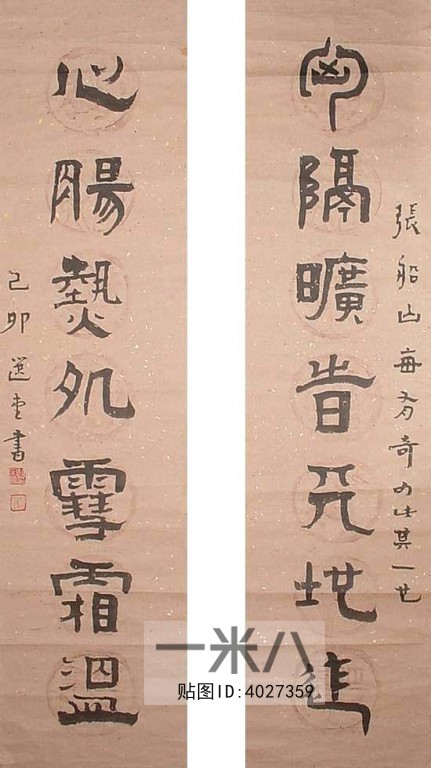 匈隔曠旹天地迮
張船山每有奇句此其一也
心腸熱処雪霜溫
己卯選堂書
一米八
贴图ID:4027359